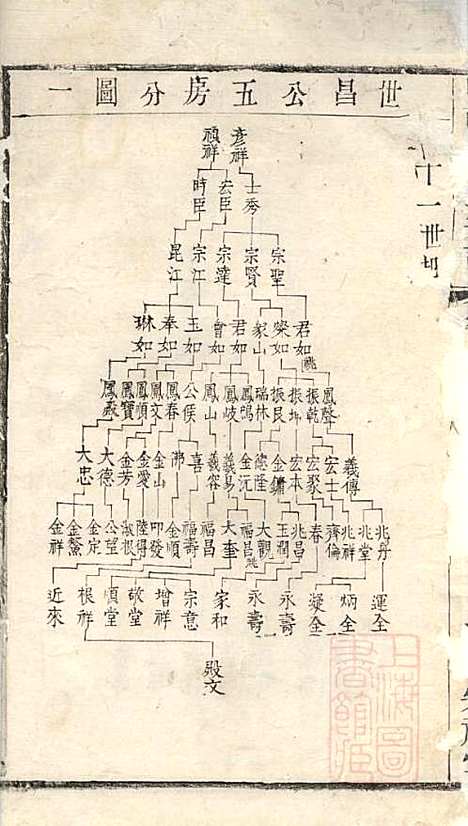 世昌公五房分圖一
十一世
彥祥 禎祥
士秀 宏臣 時臣
宗聖 宗賢 宗達 宗江 昆江
君如 燦如 家山 君如 會如 玉如 奉如 琳如
鳳聲 振乾 振坤 振艮 瑞林 鳳鳴 鳳岐 鳳山 公侯 鳳春 鳳文 鳳順 鳳寶
義傳 宏士 宏聚 宏本 金鏞 德隆 金沅 義易 義容 喜 沸 金山 金愛 金芳 大德 大忠
兆丹 兆堂 兆祥 齊倫 春 兆昌 玉潤 大觀 福昌 大奎 福昌 福壽 金順 印發 陸得 淑根 公望 金定 金鰲 金祥
運全 炳全 凝全 永壽 永壽 家和 宗意 增祥 敬堂 順堂 根祥 近來
殿文
上海圖書館藏